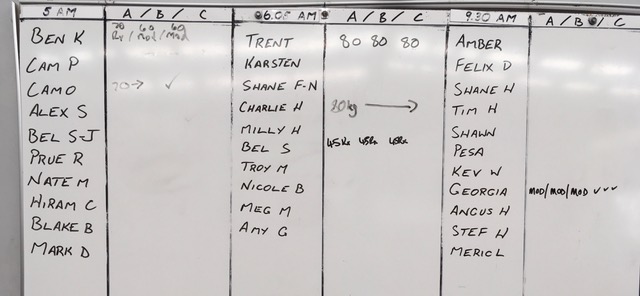 5 AM A / B / C 06.05 AM A / B / C 9.30 AM A / B / C
BEN K 70 60 60 TRENT 80 80 80 AMBER
Rx / Mod / Mod
CAM P KARSTEN FELIX D
CAMO 70 → ✓ SHANE F-N SHANE H
ALEX S CHARLIE H 80kg → TIM H
BEL S-J MILLY H SHAWN
PRUE R BEL S 45Rx 45Rx 45Rx PESA
NATE M TROY M KEV W
HIRAM C NICOLE B GEORGIA MOD/MOD/MOD ✓✓✓
BLAKE B MEG M ANGUS H
MARK D AMY G STEF W
MERIC L